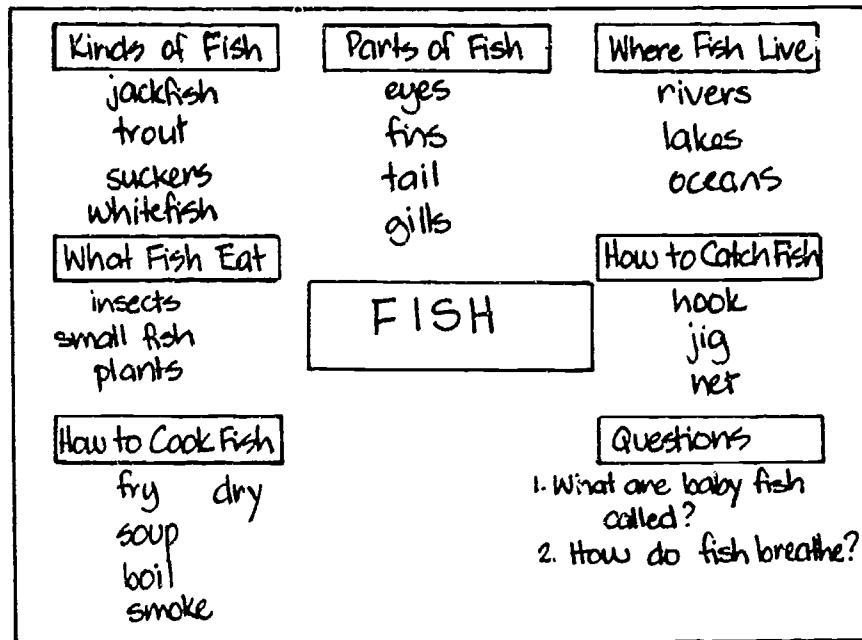 Kinds of Fish
jackfish
trout
suckers
whitefish
Parts of Fish
eyes
fins
tail
gills
Where Fish Live
rivers
lakes
oceans
What Fish Eat
insects
small fish
plants
FISH
How to Catch Fish
hook
jig
net
How to Cook Fish
fry dry
soup
boil
smoke
Questions
1. What are baby fish
called?
2. How do fish breathe?